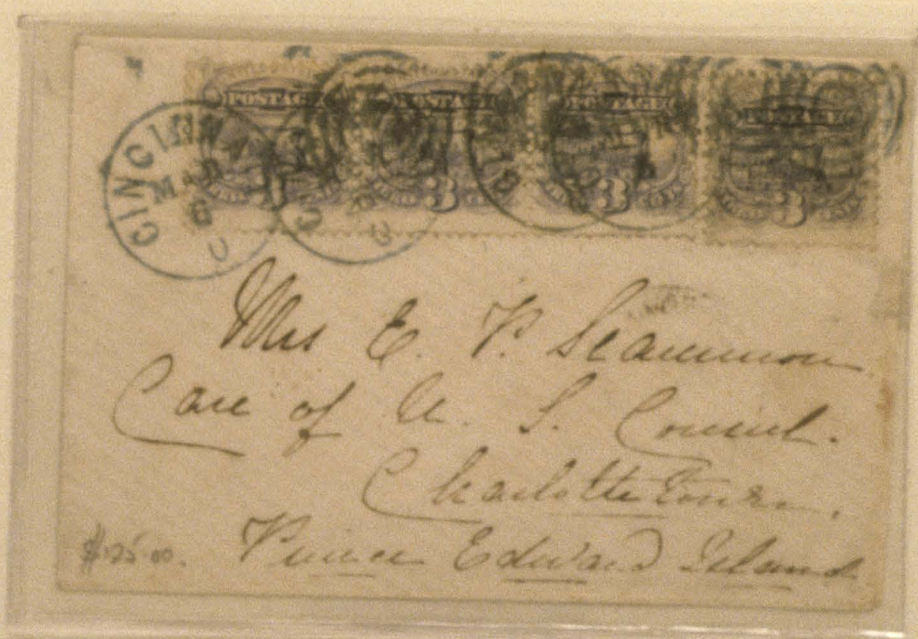 POSTAGE POSTAGE POSTAGE POSTAGE
3 3 3
CINCINN
MAR
8
O
Mrs E. P. Scammon
Care of U. S. Consul.
Charlottetown.
Prince Edward Island
$25.00.